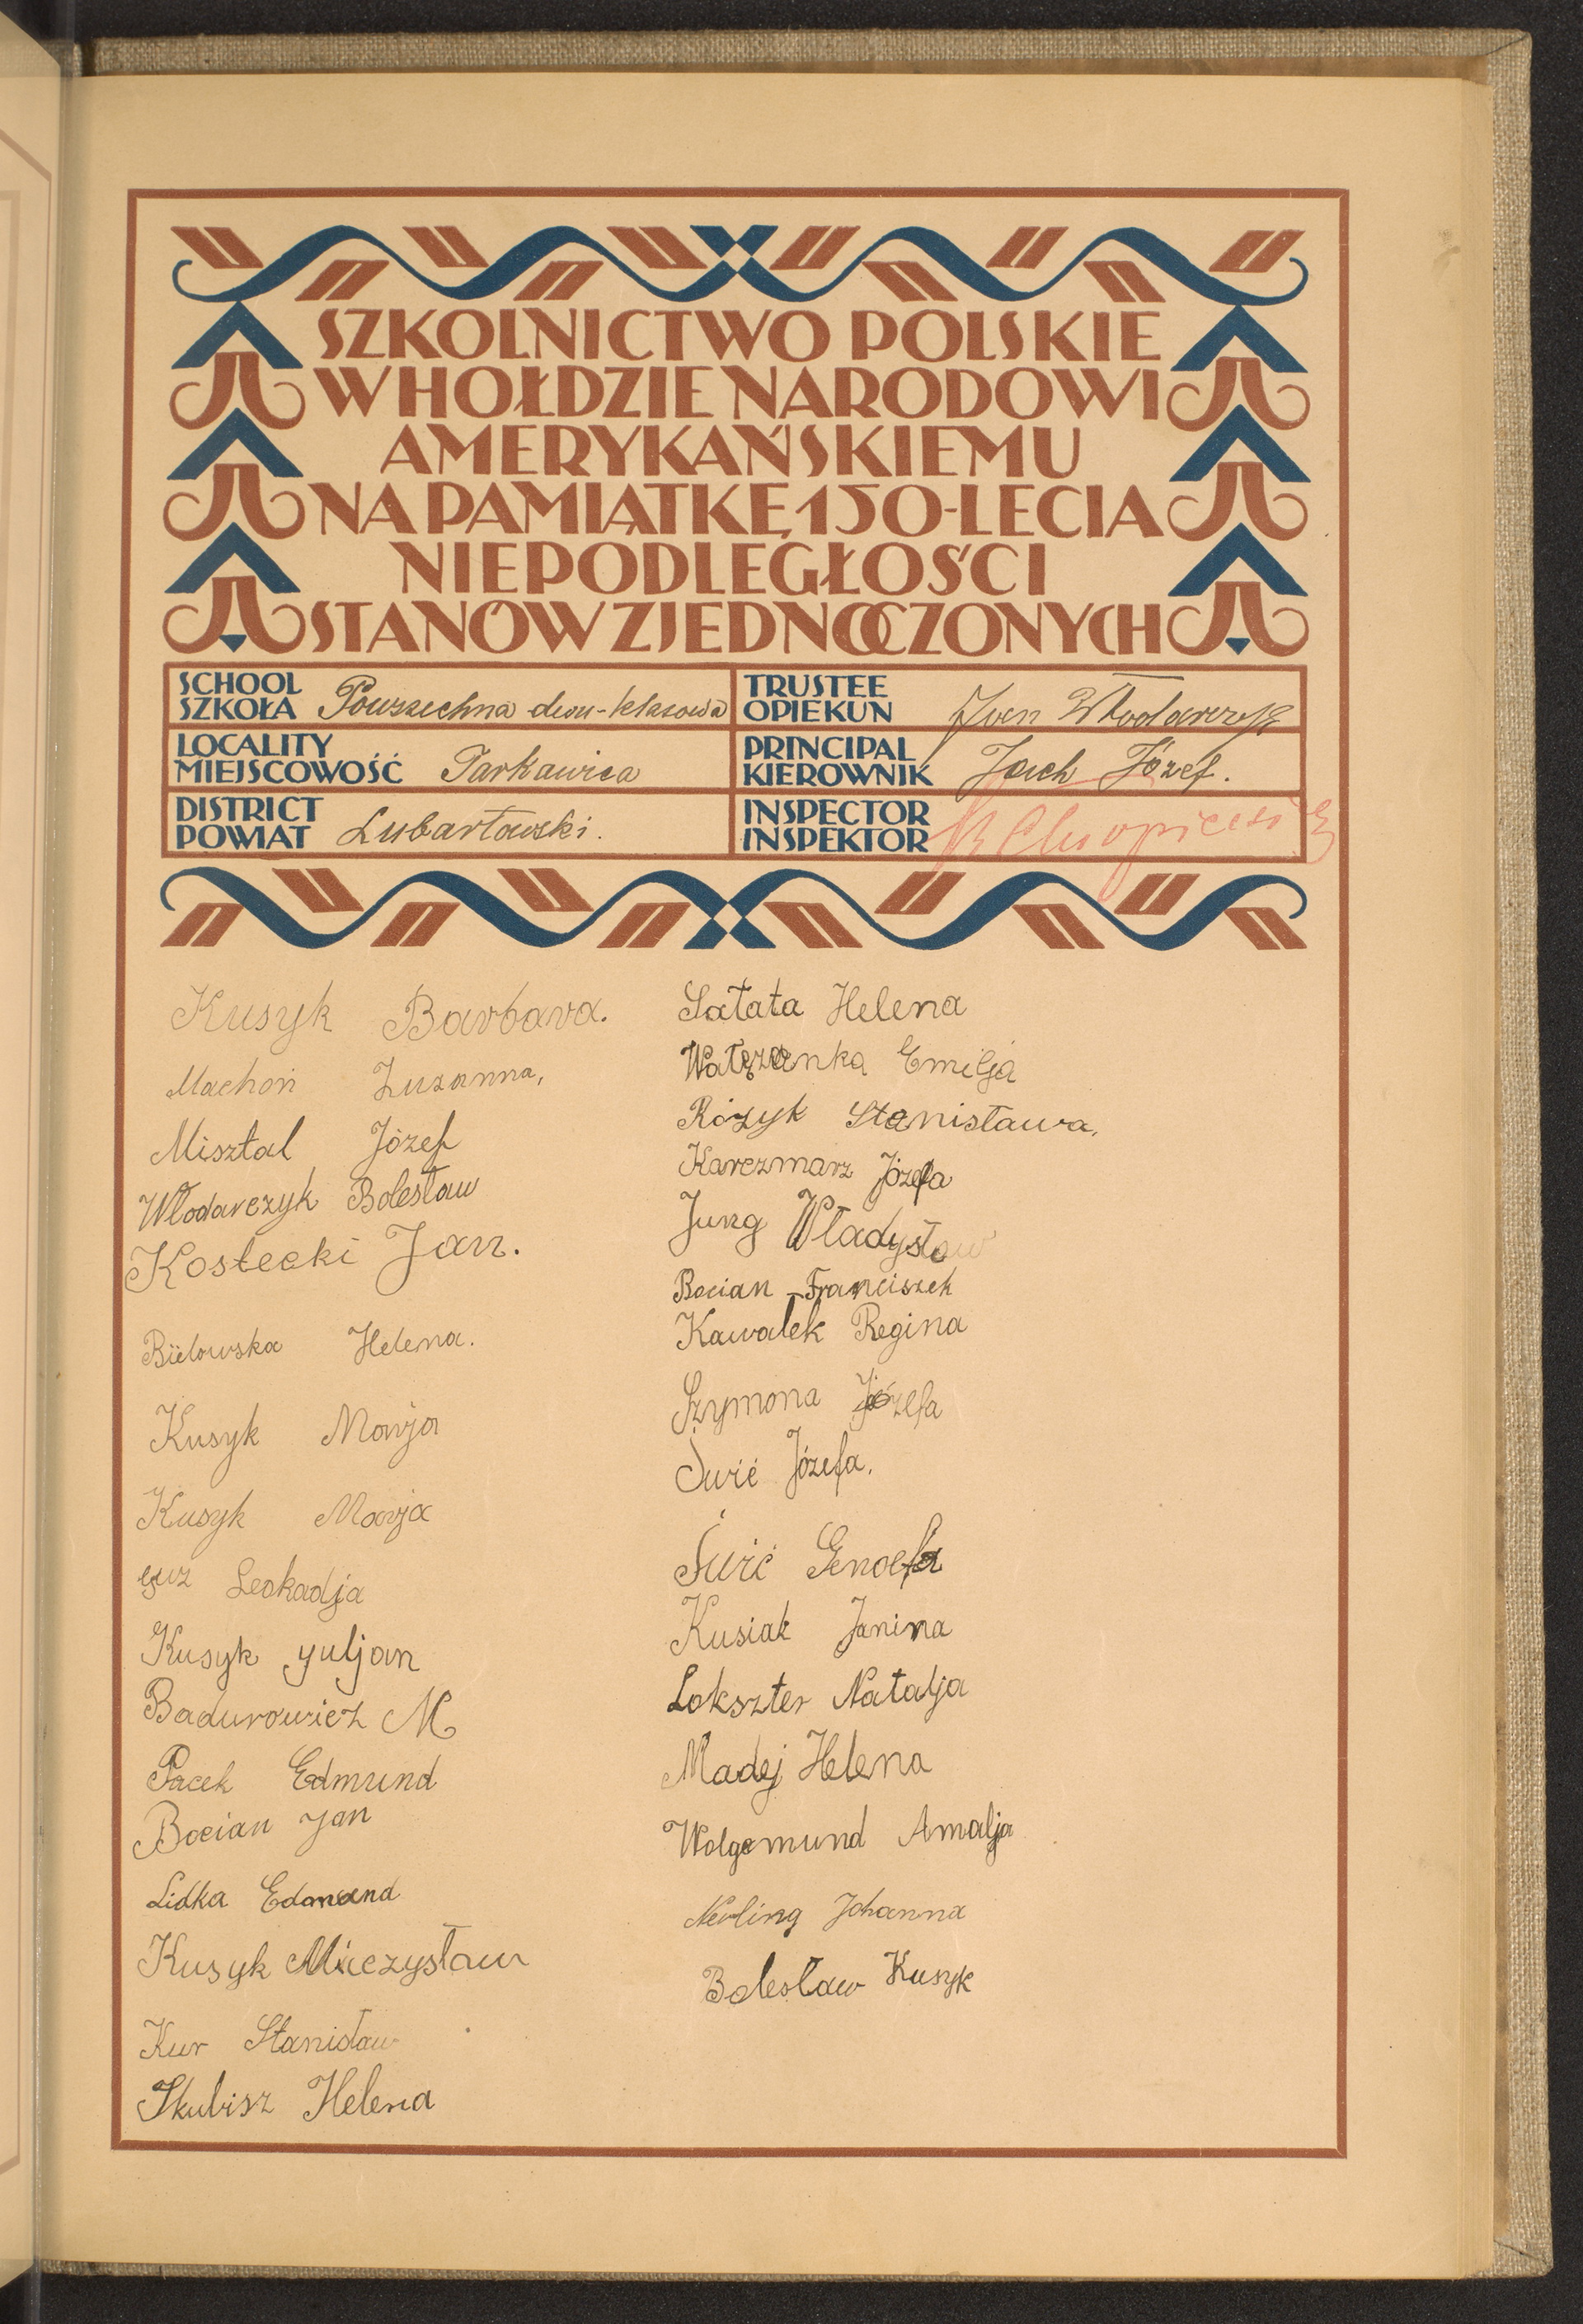 SZKOLNICTWO POLSKIE
W HOŁDZIE NARODOWI
AMERYKAŃSKIEMU
NA PAMIĄTKĘ 150-LECIA
NIEPODLEGŁOŚCI
STANÓW ZJEDNOCZONYCH
SCHOOL
SZKOŁA Powszechna dwu-klasowa
TRUSTEE
OPIEKUN Jan Włodarczyk
LOCALITY
MIEJSCOWOŚĆ Parkawica
PRINCIPAL
KIEROWNIK Jach Józef.
DISTRICT
POWIAT Lubartowski.
INSPECTOR
INSPEKTOR
Kusyk Barbara.
Machoń Zuzanna,
Misztal Józef
Włodarczyk Bolesław
Kostecki Jan.
Bielowska Helena.
Kusyk Marja
Kusyk Marja
Guz Leokadja
Kusyk Juljan
Badurowicz M
Pacek Edmund
Bocian Jan
Lidka Edmund
Kusyk Mieczysław
Kur Stanisław
Skubisz Helena
Sałata Helena
Emilja
Różyk Stanisława,
Karczmarz Józefa
Jung Władysław
Bocian Franciszek
Kawałek Regina
Szymona Józefa
Świć Józefa.
Świć Genoefa
Kusiak Janina
Lokszter Natalja
Madej Helena
Wolgemund Amalja
Nerling Johanna
Bolesław Kusyk